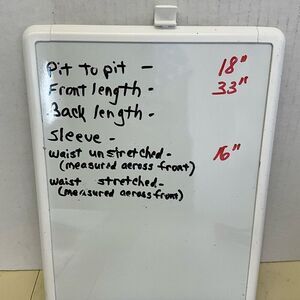 Pit to pit - 18"
Front length - 33"
Back length -
Sleeve -
Waist unstretched - 16"
(measured across front)
Waist stretched -
(measured across front)